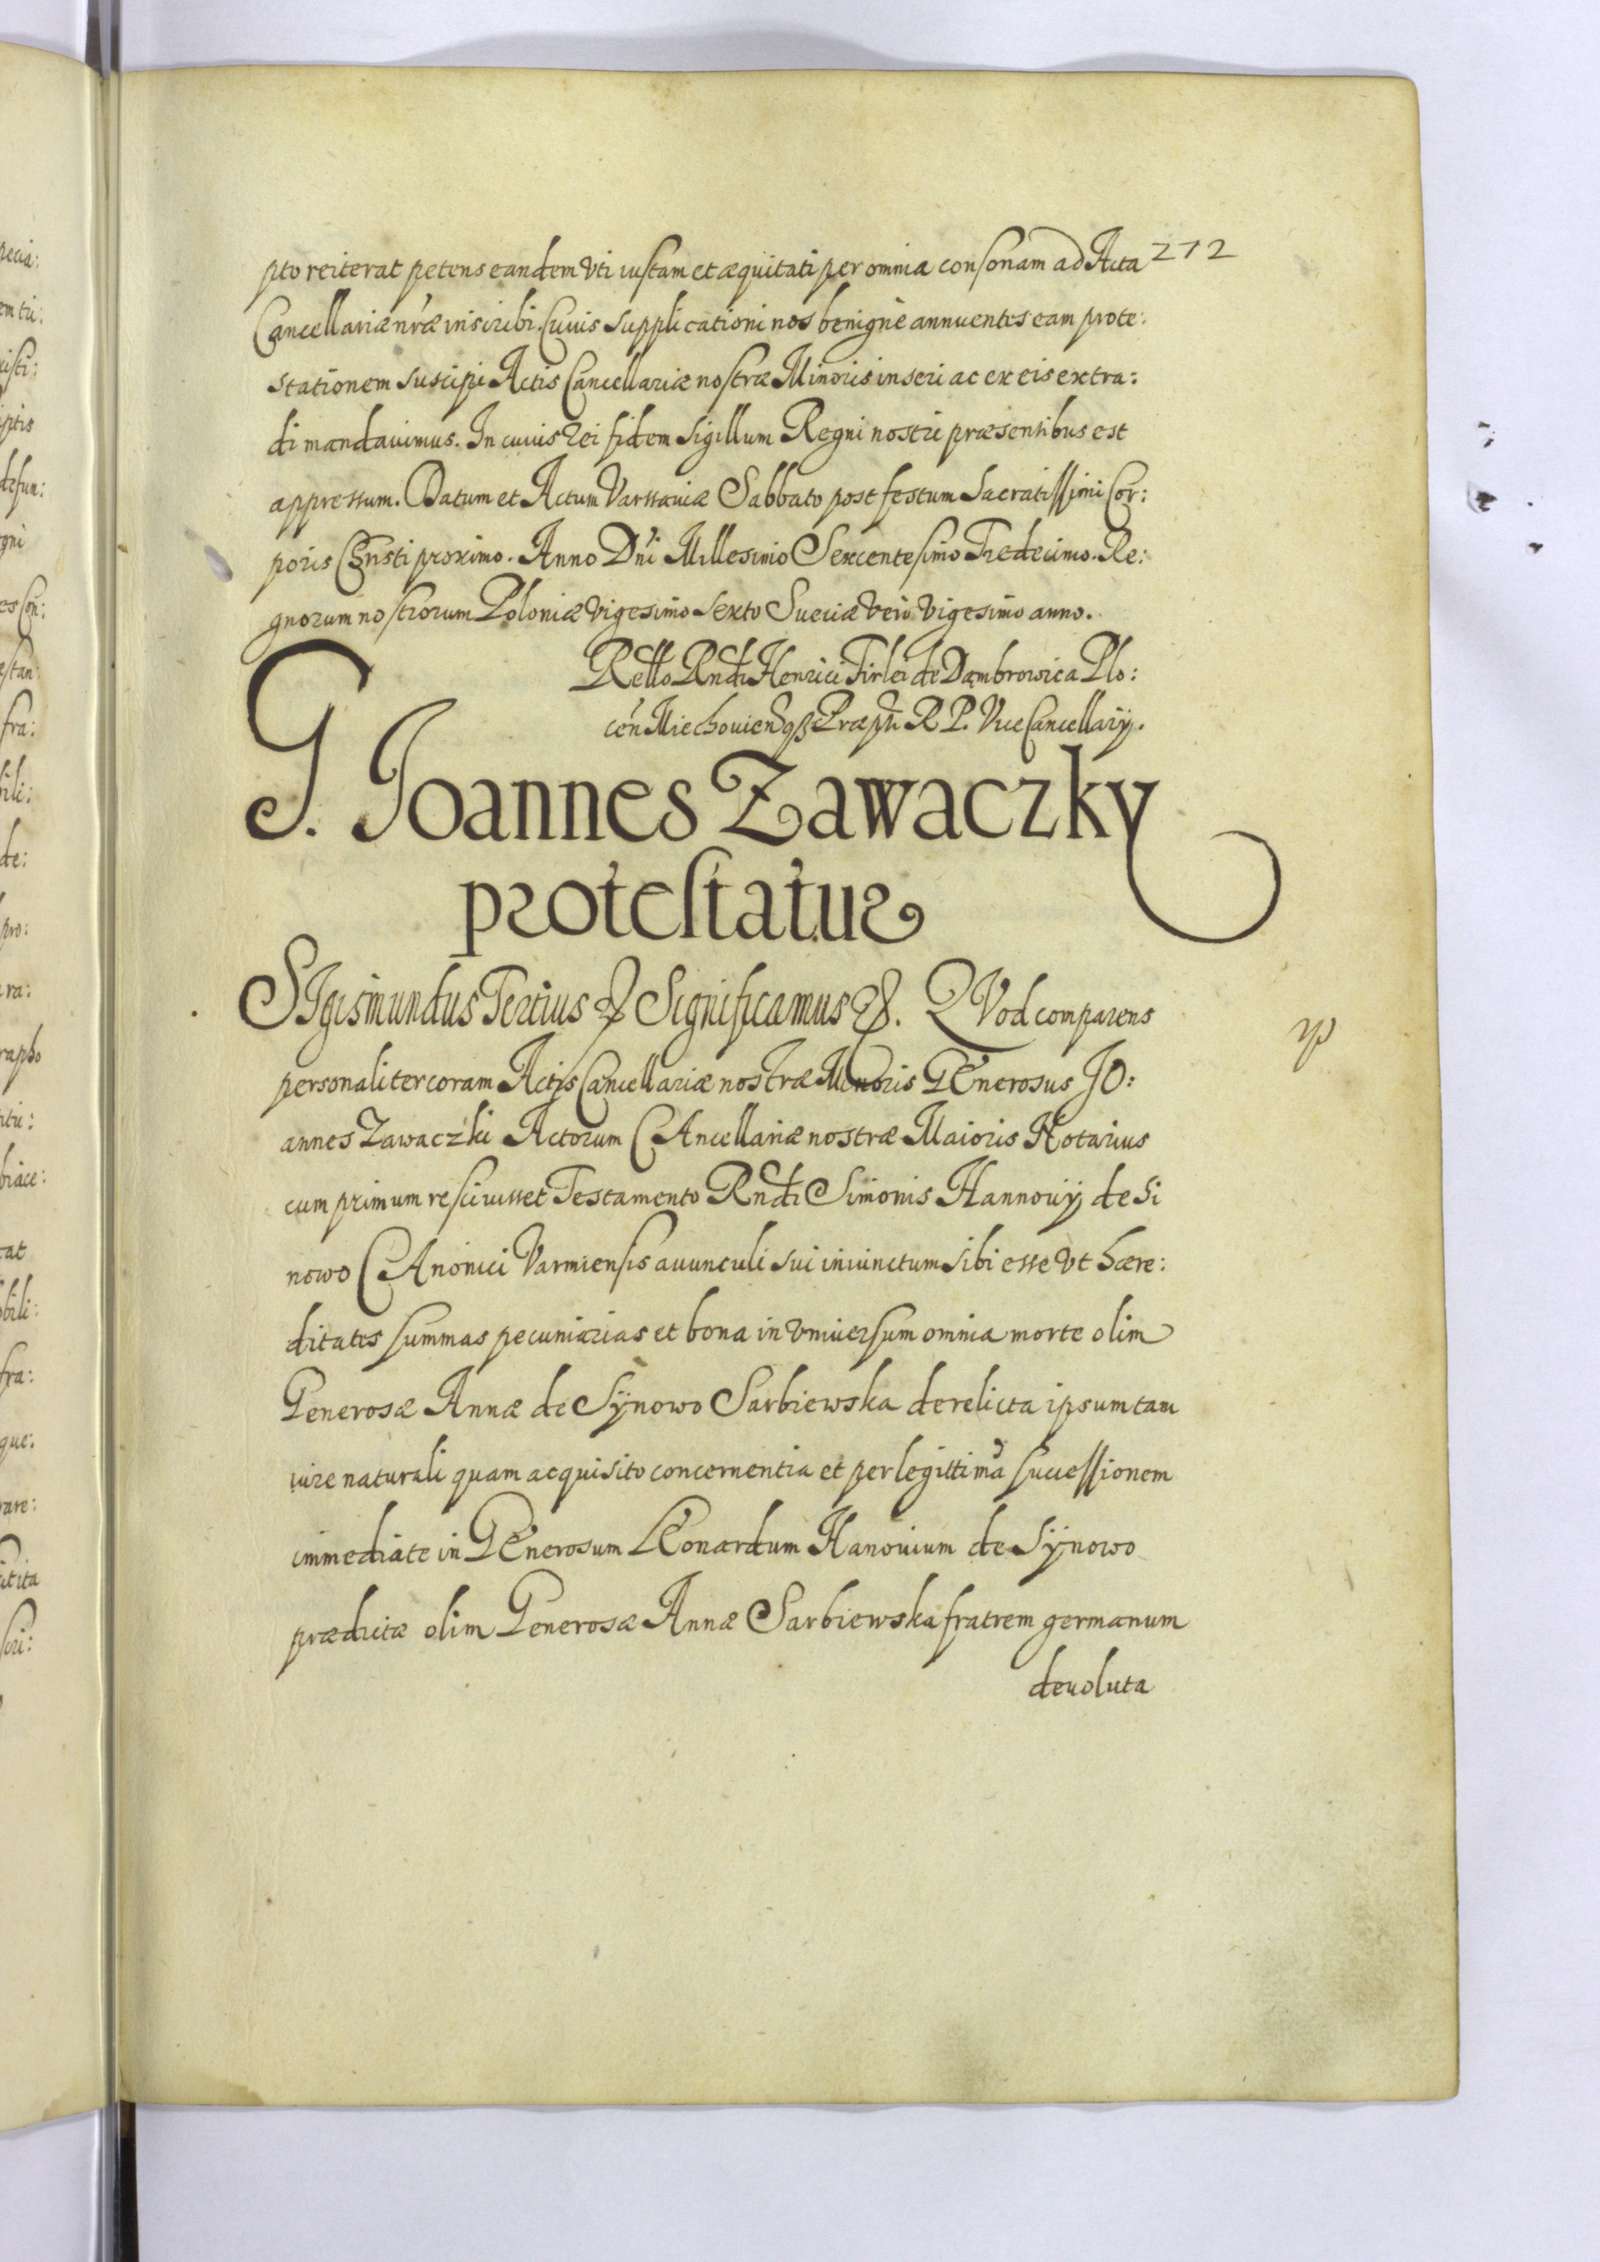 272
pto reiterat petens eandem vti iustam et æquitati per omnia consonam ad Acta
Cancellariæ nræ inscribi. Cuius supplicationi nos benignè annuentes eam prote:
stationem suscipi Actis Cancellariæ nostræ Minoris inseri ac ex eis extra:
di mandauimus. In cuius rei fidem sigillum Regni nostri præsentibus est
appressum. Datum et Actum Varssauiæ Sabbato post festum Sacratissimi Cor:
poris Christi proximo. Anno Dni Millesimo Sexcentesimo Tredecimo. Re:
gnorum nostrorum Poloniæ Vigesimo sexto Sueciæ vero Vigesimo anno.
Rello Rndi Henrici Firlei de Dambrowica Plo:
cen Miechouien Præpti R P. ViceCancellarij.
G. Joannes Zawaczky
protestatur
SIgismundus Tertius & Significamus &. QVod comparens
personaliter coram Actis Cancellariæ nostræ Minoris GEnerosus JO:
annes Zawaczki Actorum CAncellariæ nostræ Maioris Notarius
cum primum resciuisset Testamento Rndi Simonis Hannouij de Si
nowo CAnonici Varmiensis auunculi sui iniunctum sibi esse vt hære:
ditates summas pecuniarias et bona in vniuersum omnia morte olim
Generosæ Annæ de Sÿnowo Sarbiewska derelicta ipsum tam
iure naturali quam acquisito concernentia et per legittimã successionem
immediate in GEnerosum LEonardum Hanouium de Sÿnowo
prædictæ olim Generosæ Annæ Sarbiewska fratrem germanum
deuoluta